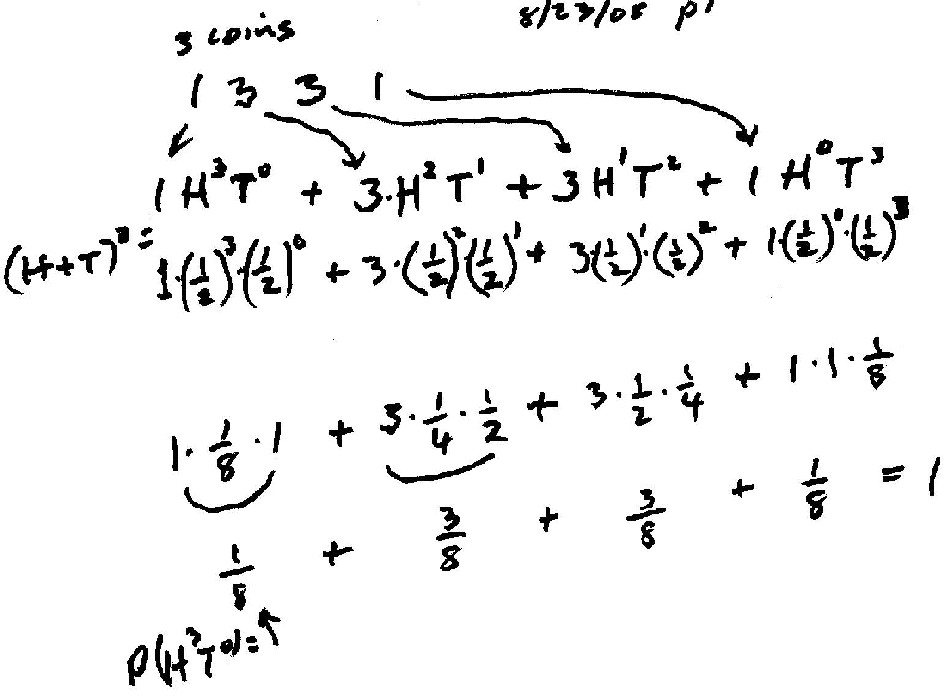 8/23/08 p1
3 coins
1 3 3 1
1 H³T⁰ + 3·H²T¹ + 3 H¹T² + 1 H⁰T³
(H+T)³ = 1·(1/2)³·(1/2)⁰ + 3·(1/2)²(1/2)¹ + 3(1/2)¹·(1/2)² + 1·(1/2)⁰·(1/2)³
1·1/8·1 + 3·1/4·1/2 + 3·1/2·1/4 + 1·1·1/8
1/8 + 3/8 + 3/8 + 1/8 = 1
P(H³T⁰)=